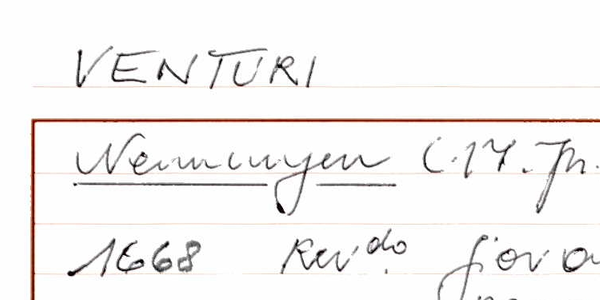 VENTURI
Nenningen (17. Jh.
1668 Rev.do Giova